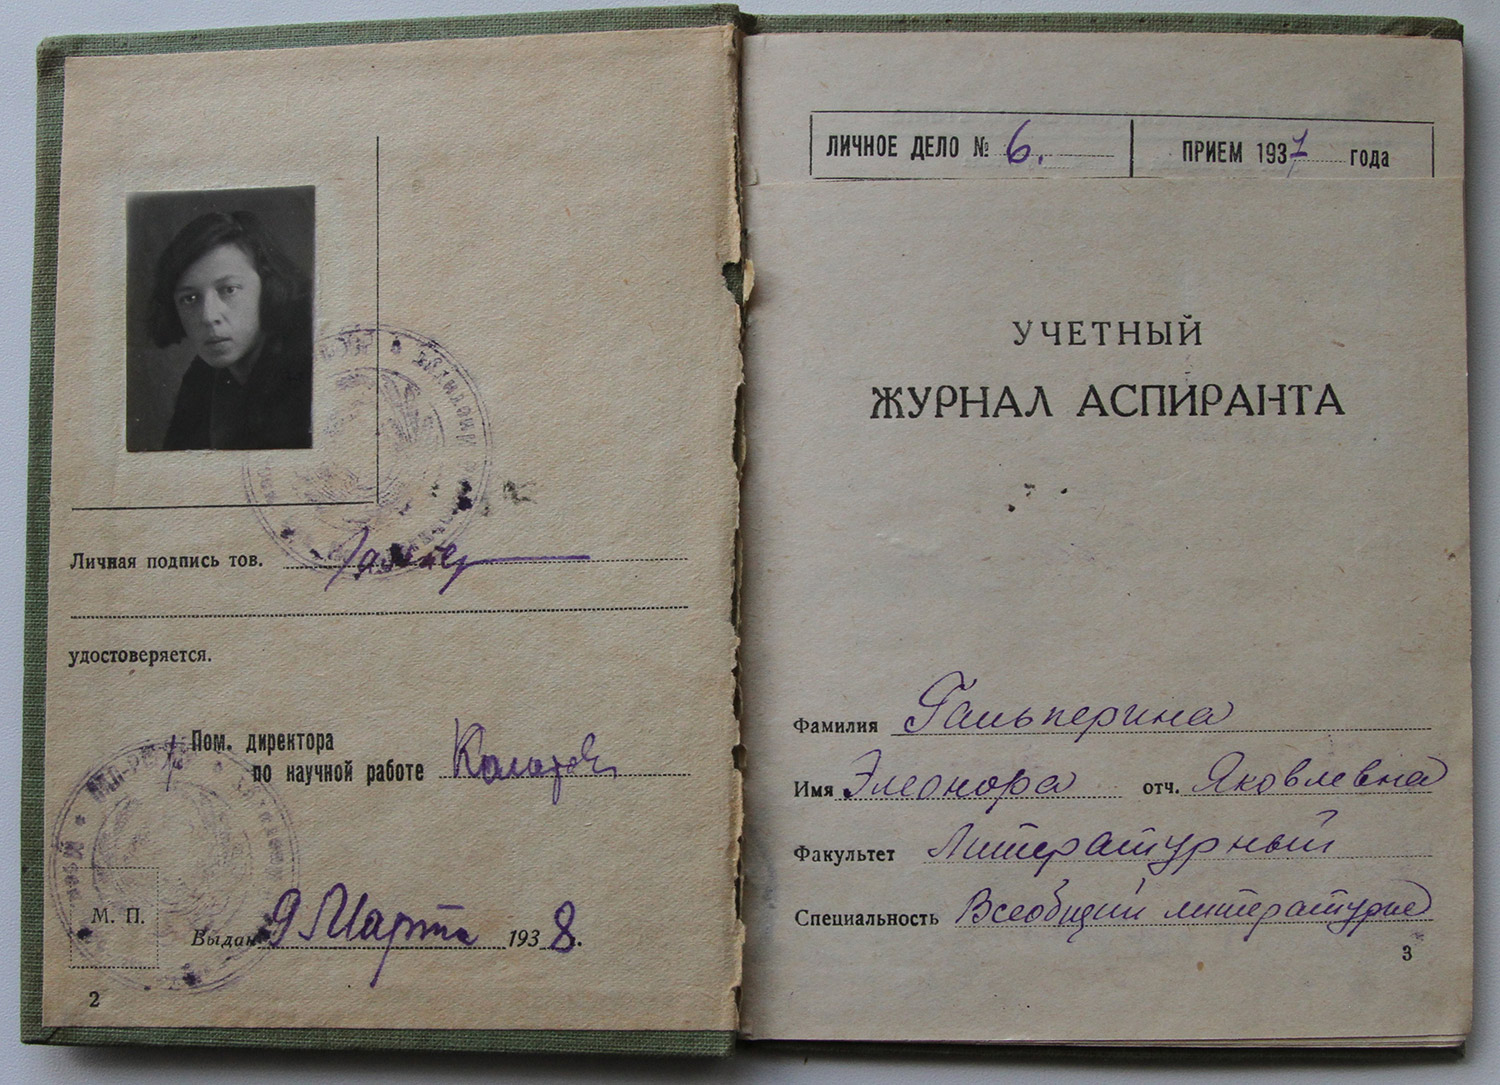 Личная подпись тов.
удостоверяется.
Пом. директора
по научной работе
М. П.
Выдан 9 Марта 1938.
2
ЛИЧНОЕ ДЕЛО № 6.
ПРИЕМ 1937 года
УЧЕТНЫЙ
ЖУРНАЛ АСПИРАНТА
Фамилия Гальперина
Имя Элеонора отч. Яковлевна
Факультет Литературный
Специальность Всеобщий литературе
3